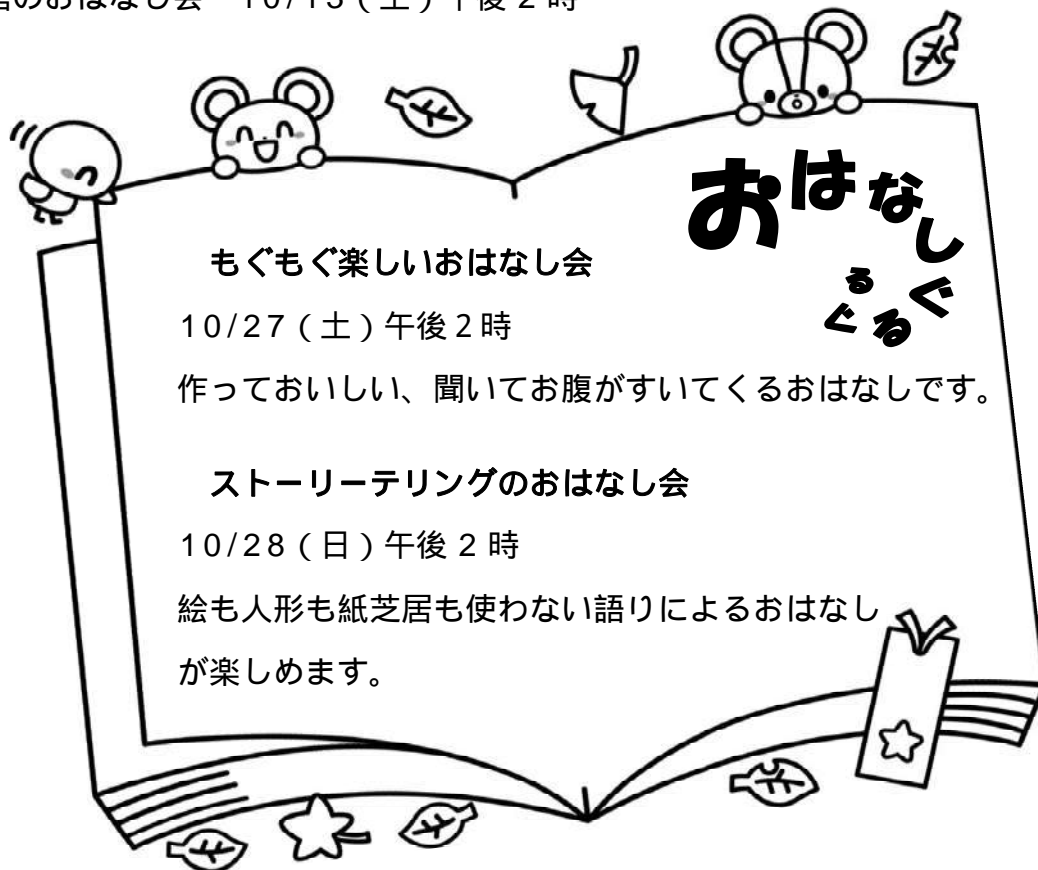 のおはなし会 10/13（土）午後2時
おはなしぐるぐる
もぐもぐ楽しいおはなし会
10/27（土）午後２時
作っておいしい、聞いてお腹がすいてくるおはなしです。
ストーリーテリングのおはなし会
10/28（日）午後 2 時
絵も人形も紙芝居も使わない語りによるおはなし
が楽しめます。